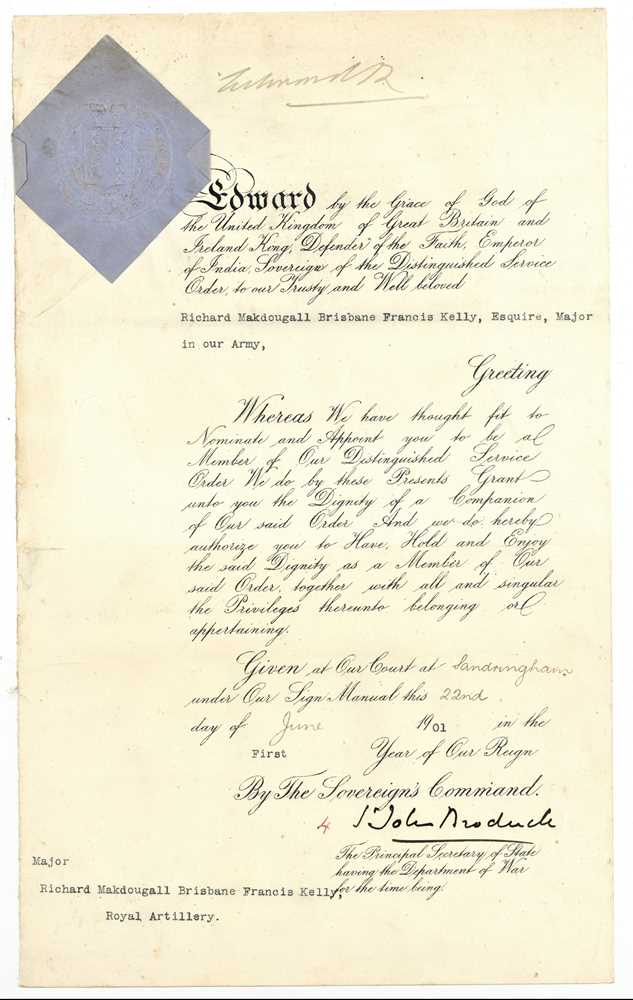 Edward R
Edward by the Grace of God of
the United Kingdom of Great Britain and
Ireland King, Defender of the Faith, Emperor
of India, Sovereign of the Distinguished Service
Order, to our Trusty and Well beloved
Richard Makdougall Brisbane Francis Kelly, Esquire, Major
in our Army,
Greeting
Whereas We have thought fit to
Nominate and Appoint you to be a
Member of Our Distinguished Service
Order We do by these Presents Grant
unto you the Dignity of a Companion
of Our said Order And we do hereby
authorize you to Have, Hold and Enjoy
the said Dignity as a Member of Our
said Order, together with all and singular
the Privileges thereunto belonging or
appertaining.
Given at Our Court at Sandringham
under Our Sign Manual this 22nd
day of June 1901 in the
First Year of Our Reign
By The Sovereign's Command.
4 St John Brodrick
The Principal Secretary of State
having the Department of War
for the time being.
Major
Richard Makdougall Brisbane Francis Kelly,
Royal Artillery.